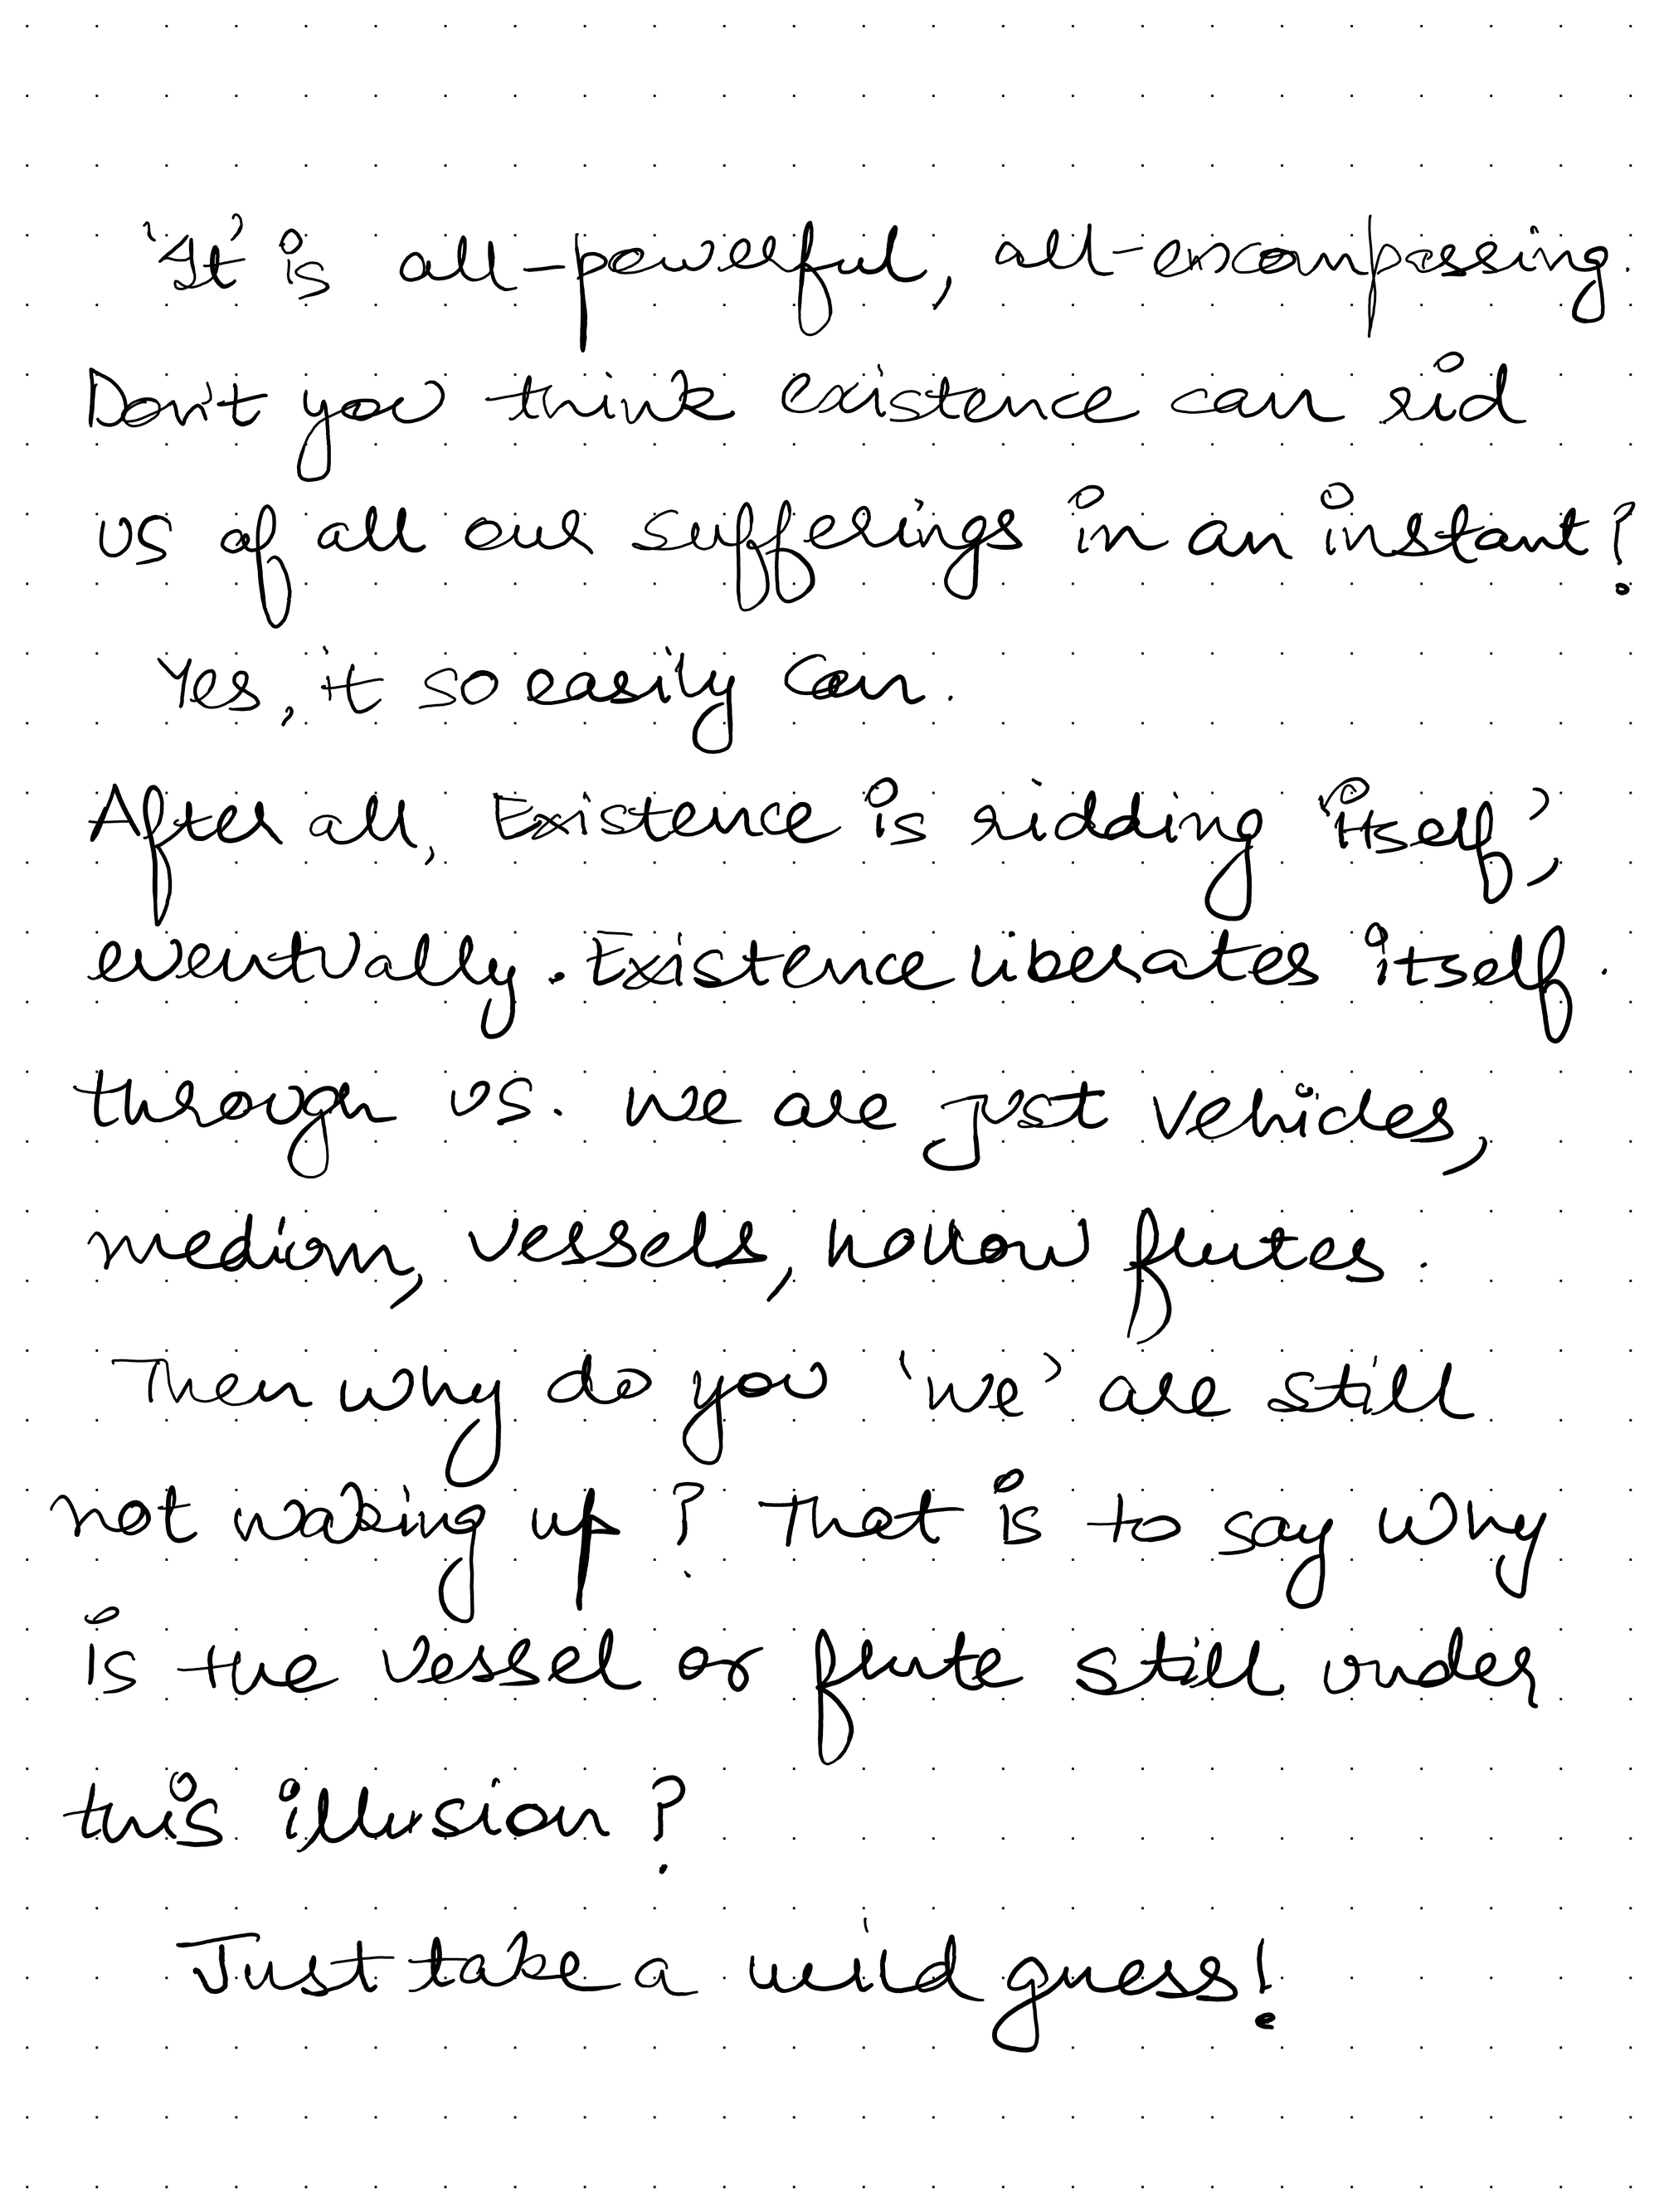 'It' is all-powerful, all-encompassing.
Don't you think existence can rid
us of all our sufferings in an instant?
Yes, it so easily can.
After all, Existence is ridding 'itself',
eventually. Existence liberates itself.
through us. We are just vehicles,
medium, vessels, hollow flutes.
Then why do you 'we' are still
not waking up? That is to say why
is the vessel or flute still under
this illusion?
Just take a wild guess!